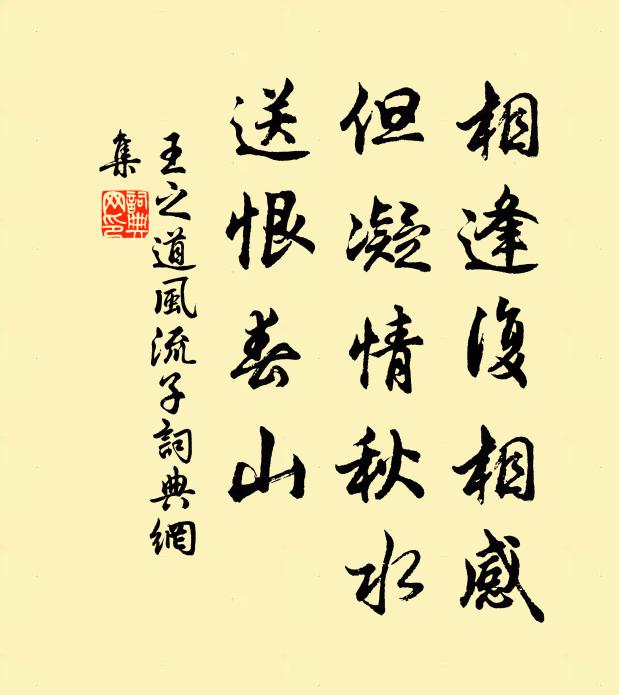 相逢復相感
但凝情秋水
送恨春山
王之道風流子詞典網
集
詞典網印